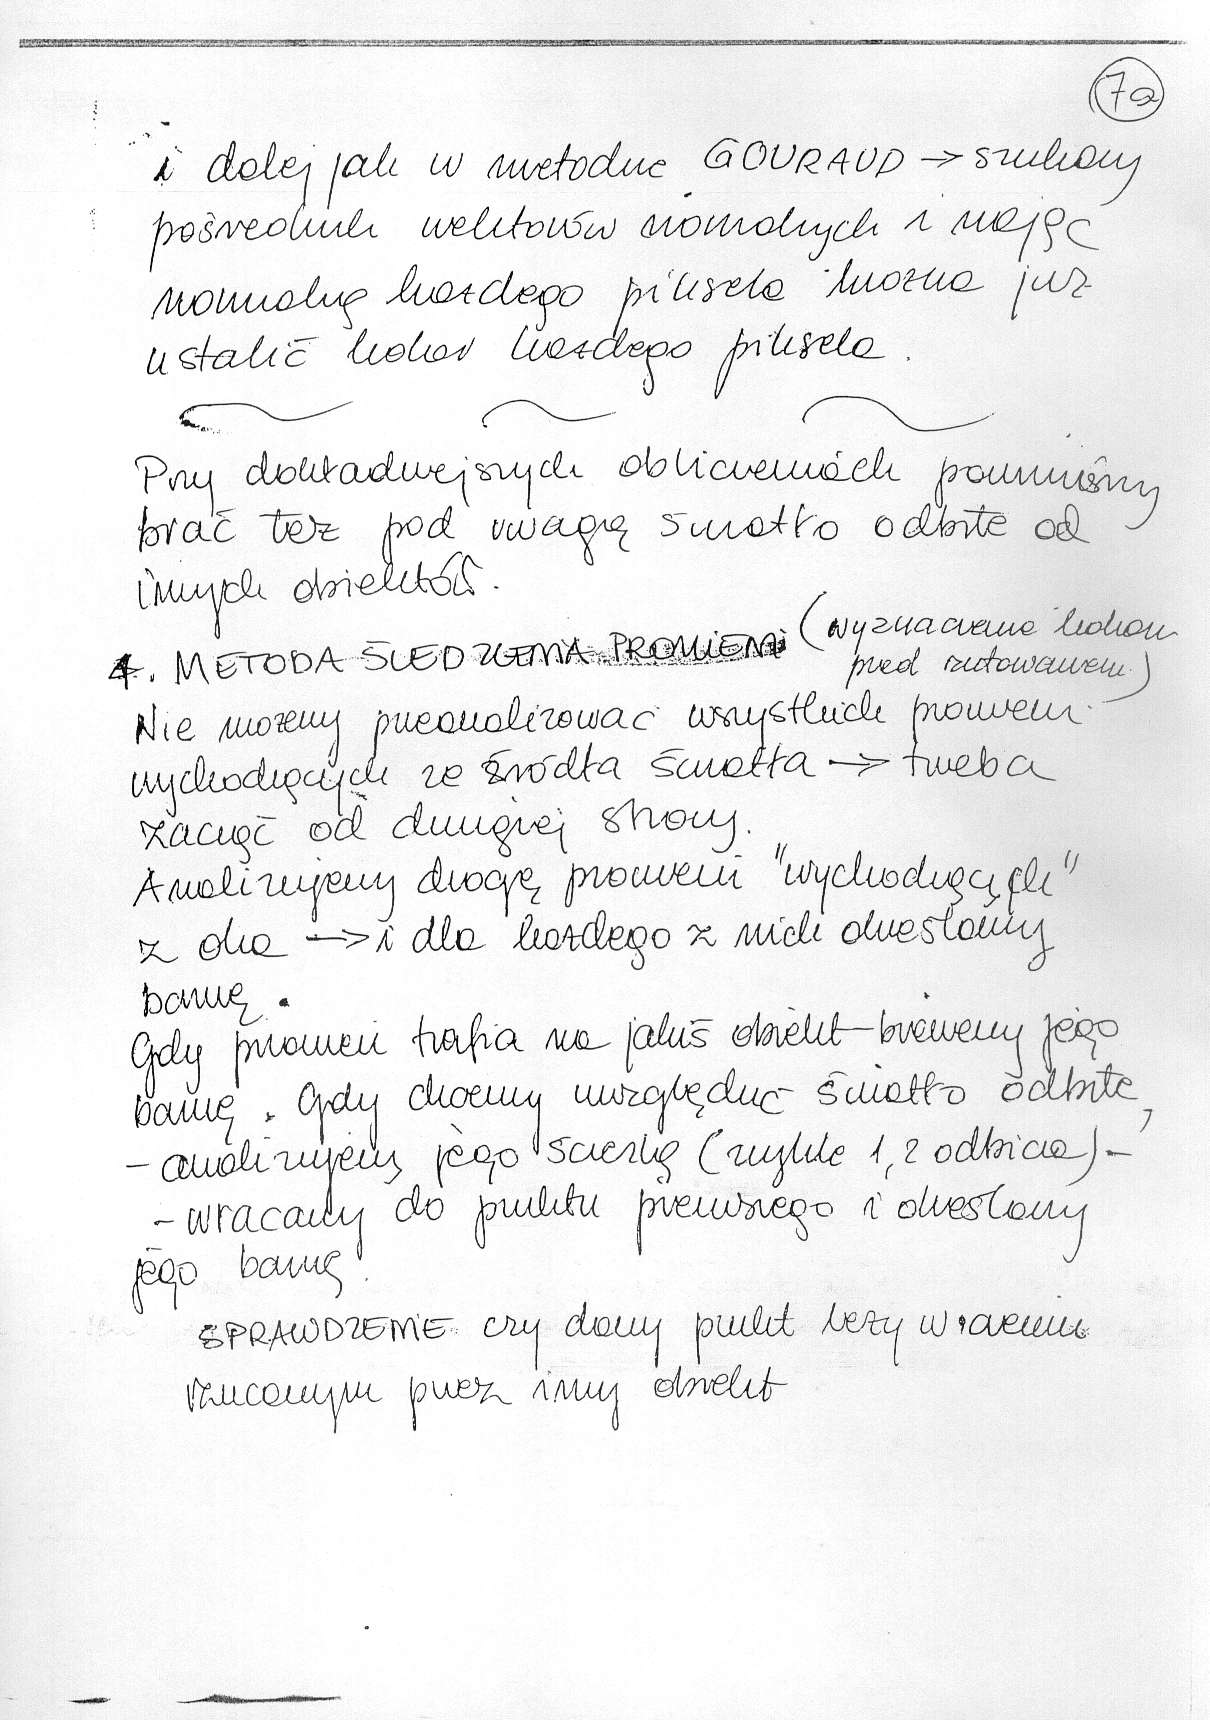 7a
i dalej jak w metodzie GOURAUD → szukamy
pośrednich wektorów normalnych i mając
normalną każdego piksela można już
ustalić kolor każdego piksela.
Przy dokładniejszych obliczeniach powinniśmy
brać też pod uwagę światło odbite od
innych obiektów.
4. METODA ŚLEDZENIA PROMIENI (wyznaczenie koloru
przed rzutowaniem)
Nie możemy przeanalizować wszystkich promieni
wychodzących ze źródła światła → trzeba
zacząć od drugiej strony.
Analizujemy drogę promieni "wychodzących"
z oka → i dla każdego z nich określamy
barwę.
Gdy promień trafia na jakiś obiekt - bierzemy jego
barwę. Gdy chcemy uwzględnić światło odbite,
- analizujemy jego ścieżkę (zwykle 1, 2 odbicia) -
- wracamy do punktu pierwszego i określamy
jego barwę.
SPRAWDZENIE czy dany punkt leży w cieniu
rzucanym przez inny obiekt